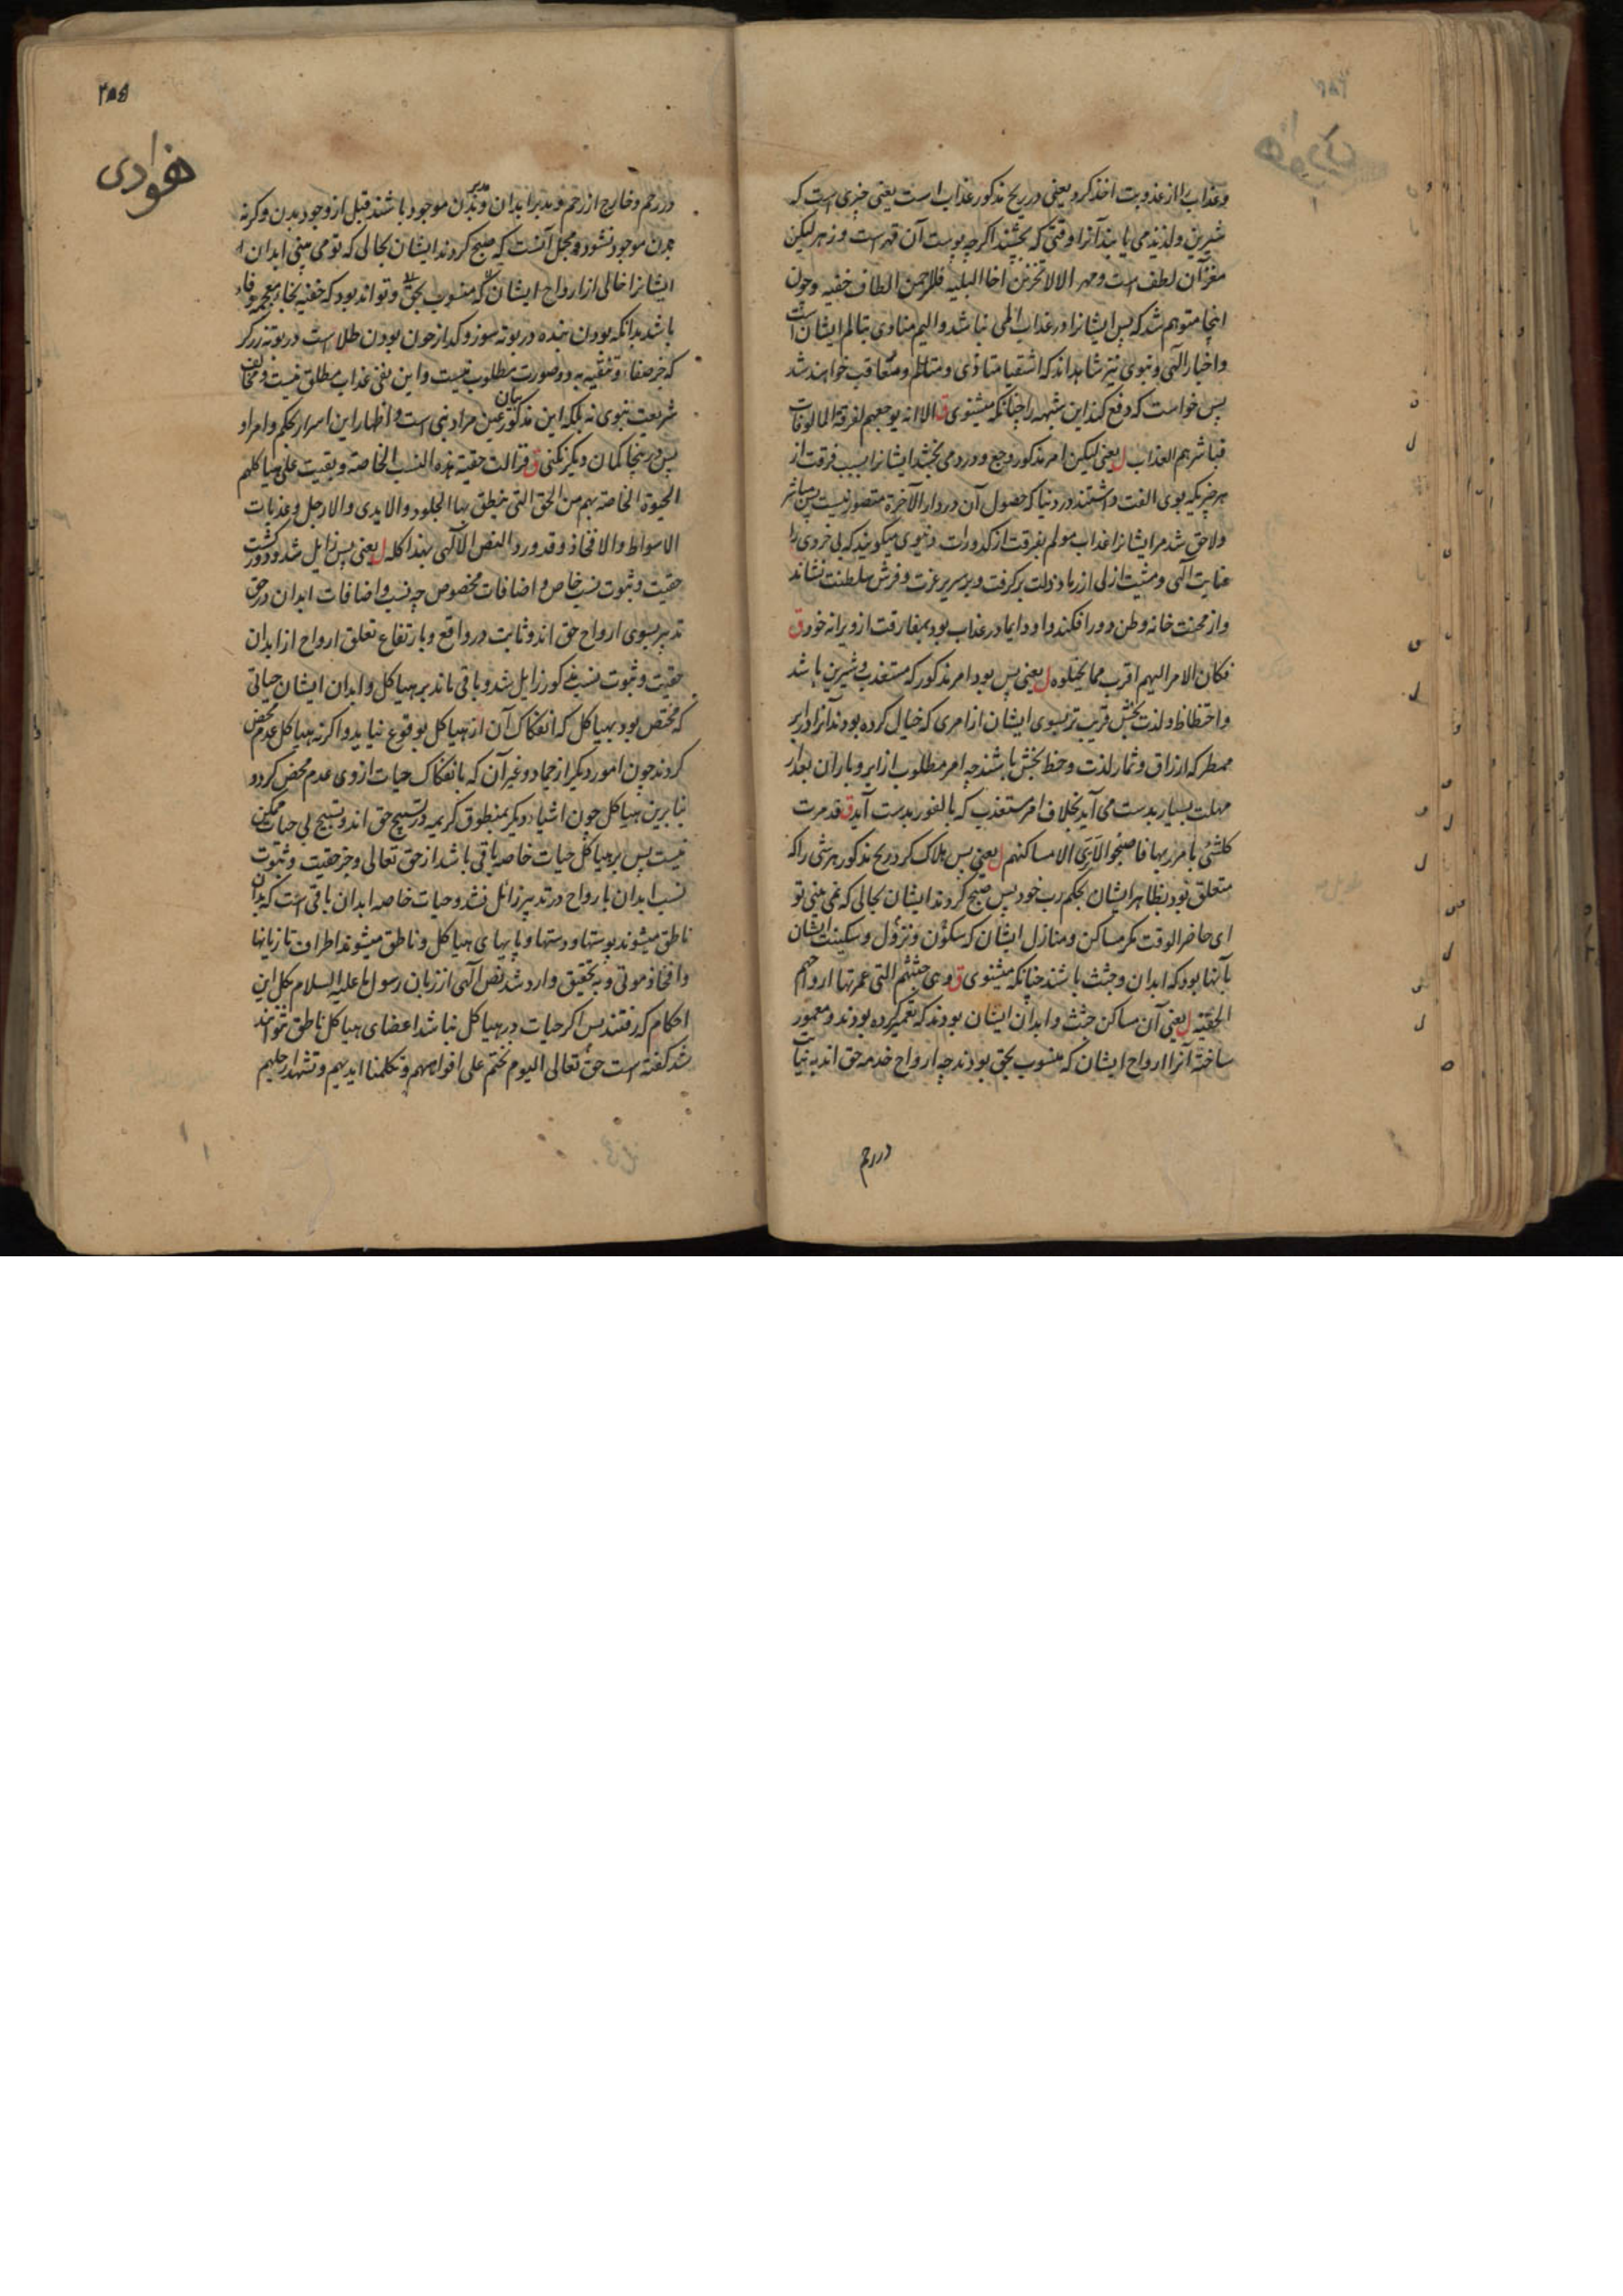 وعذاب را از عذوبت اخذ کرد یعنی در ریح مذکور عذاب است یعنی چیزی است که
شیرین ولذیذ می یابند آنرا وقتی که بچشند اگرچه پوست آن قهر است وزهر لیکن
مغز آن لطف است ومهر الا لا تحزنن اخا البلیه فللرحمن الطاف خفیه وچون
اینجا متوهم شد که پس ایشانرا در عذاب المی نباشد والیم منادی بتالم ایشان است
واخبار الهی ونبوی نیز شاهد اند که اشقیا متاذی ومتالم ومعاقب خواهند شد
پس خواست که دفع کند این شبهه را چنانکه میشنوی ق الا انه یوجعهم لفرقة المالوفات
فباشرهم العذاب ل یعنی لیکن امر مذکور وجع ودرد می بخشد ایشانرا بسبب فرقت از
هر چیزیکه بوی الفت داشتند در دنیا که حصول آن در دار الآخرة متصور نیست پس مباشر
ولاحق شد مر ایشانرا عذاب مولم بفرقت از کدورات دنیوی میگویند که بی خردی را
عنایت الهی ومشیت ازلی از رماد ذلت برگرفت وبر سریر عزت وفرش سلطنت نشاند
واز محنت خانه وطن دور افکند واو دایما در عذاب بود بمفارقت از ویرانه خود ق
فکان الامر الیهم اقرب مما یخیلوه ل یعنی پس بود امر مذکور که مستعذب وشیرین باشد
واحتظاظ ولذت بخش قریب تر بسوی ایشان از امری که خیال کرده بودند آنرا در ابر
ممطر که ارزاق وثمار لذت وحظ بخش باشند چه امر مطلوب از ابر وباران بعد از
مهلت بسیار بدست می آید بخلاف امر مستعذب که بالفور بدست آید ق فدمرت
کلشئ بامر ربها فاصبحوا لا یری الا مساکنهم ل یعنی پس هلاک کرد ریح مذکور هر شئ را که
متعلق بود بظاهر ایشان بحکم رب خود پس صبح کردند ایشان بحالی که نمی بینی تو
ای حاضر الوقت مگر مساکن ومنازل ایشان که سکون ونزول وسکینت ایشان
بآنها بود که ابدان وجثث باشند چنانکه میشنوی ق وهی جثثهم التی عمرتها ارواحهم
الحقیة ل یعنی آن مساکن جثث وابدان ایشان بودند که تعمیر کرده بودند ومعمور
ساخته آنرا ارواح ایشان که منسوب بحق بودند چه ارواح خدمه حق اند به نیابت
در رحم
۴۵۵
هودی
در رحم وخارج از رحم ومدبر ابدان وبدان موجود باشند قبل از وجود بدن وگرنه
بدن موجود نشود ومجمل آنست که صبح کردند ایشان بحالی که تو می بینی ابدان
ایشانرا خالی از ارواح ایشان که منسوب بحق وتواند بود که خفیه بخاء معجمه وفاء
باشد بدانکه بودن بنده در بوته سوز وگداز چون بودن طلا است در بوته زرگر
که جز صفا وتنقیه به دو صورت مطلوب نیست واین نفی عذاب مطلق نیست ومخالف
شریعت نبوی نه بلکه این مذکور بیان عین مراد نبی است واظهار این اسرار بحکم وامر او
پس در اینجا گمان دیگر نکنی ق فزالت حقیة هذه النسب الخاصة وبقیت علی هیاکلهم
الحیوة الخاصة بهم من الحق التی ینطق بها الجلود والایدی والارجل وعذبات
الاسواط والافخاذ وقد ورد النص الالهی بهذا کله ل یعنی پس زایل شد ودور گشت
حقیت وثبوت نسب خاص واضافات مخصوص چه نسب واضافات ابدان در حق
تدبیر بسوی ارواح حق اند وثابت در واقع وبارتفاع تعلق ارواح از ابدان
حقیت وثبوت نسب مذکور زایل شد وباقی ماند بر هیاکل وابدان ایشان حیاتی
که مختص بود بهیاکل که انفکاک آن از هیاکل بوقوع نیاید واگرنه هیاکل عدم محض
گردند چون امور دیگر از جماد وغیر آن که بانفکاک حیات از وی عدم محض گردد
بنابرین هیاکل چون اشیاء دیگر بمنطوق کریمه در تسبیح حق اند وتسبیح بی حیات ممکن
نیست پس بر هیاکل حیات خاصه باقی باشد از حق تعالی وجز حقیت وثبوت
نسب ابدان بارواح در تدبیر زائل نشد وحیات خاصه ابدان باقی است که بدان
ناطق میشوند پوستها ودستها وپایهای هیاکل وناطق میشوند اطراف تازیانها
وافخاذ موتی وبه تحقیق وارد شد نص الهی از زبان رسول ما علیه السلام بکل این
احکام که رفتند پس اگر حیات در هیاکل نباشد اعضای هیاکل ناطق نتوانند
شد گفته است حق تعالی الیوم نختم علی افواههم وتکلمنا ایدیهم وتشهد ارجلهم